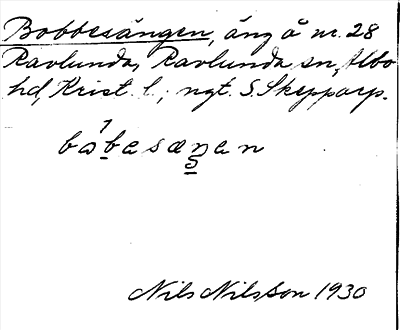 Bobbesången, äng å nr. 28
Ravlunda, Ravlunda sn, Albo
hd, Krist. l.; ngt. S Skepparp.
Nils Nilsson 1930